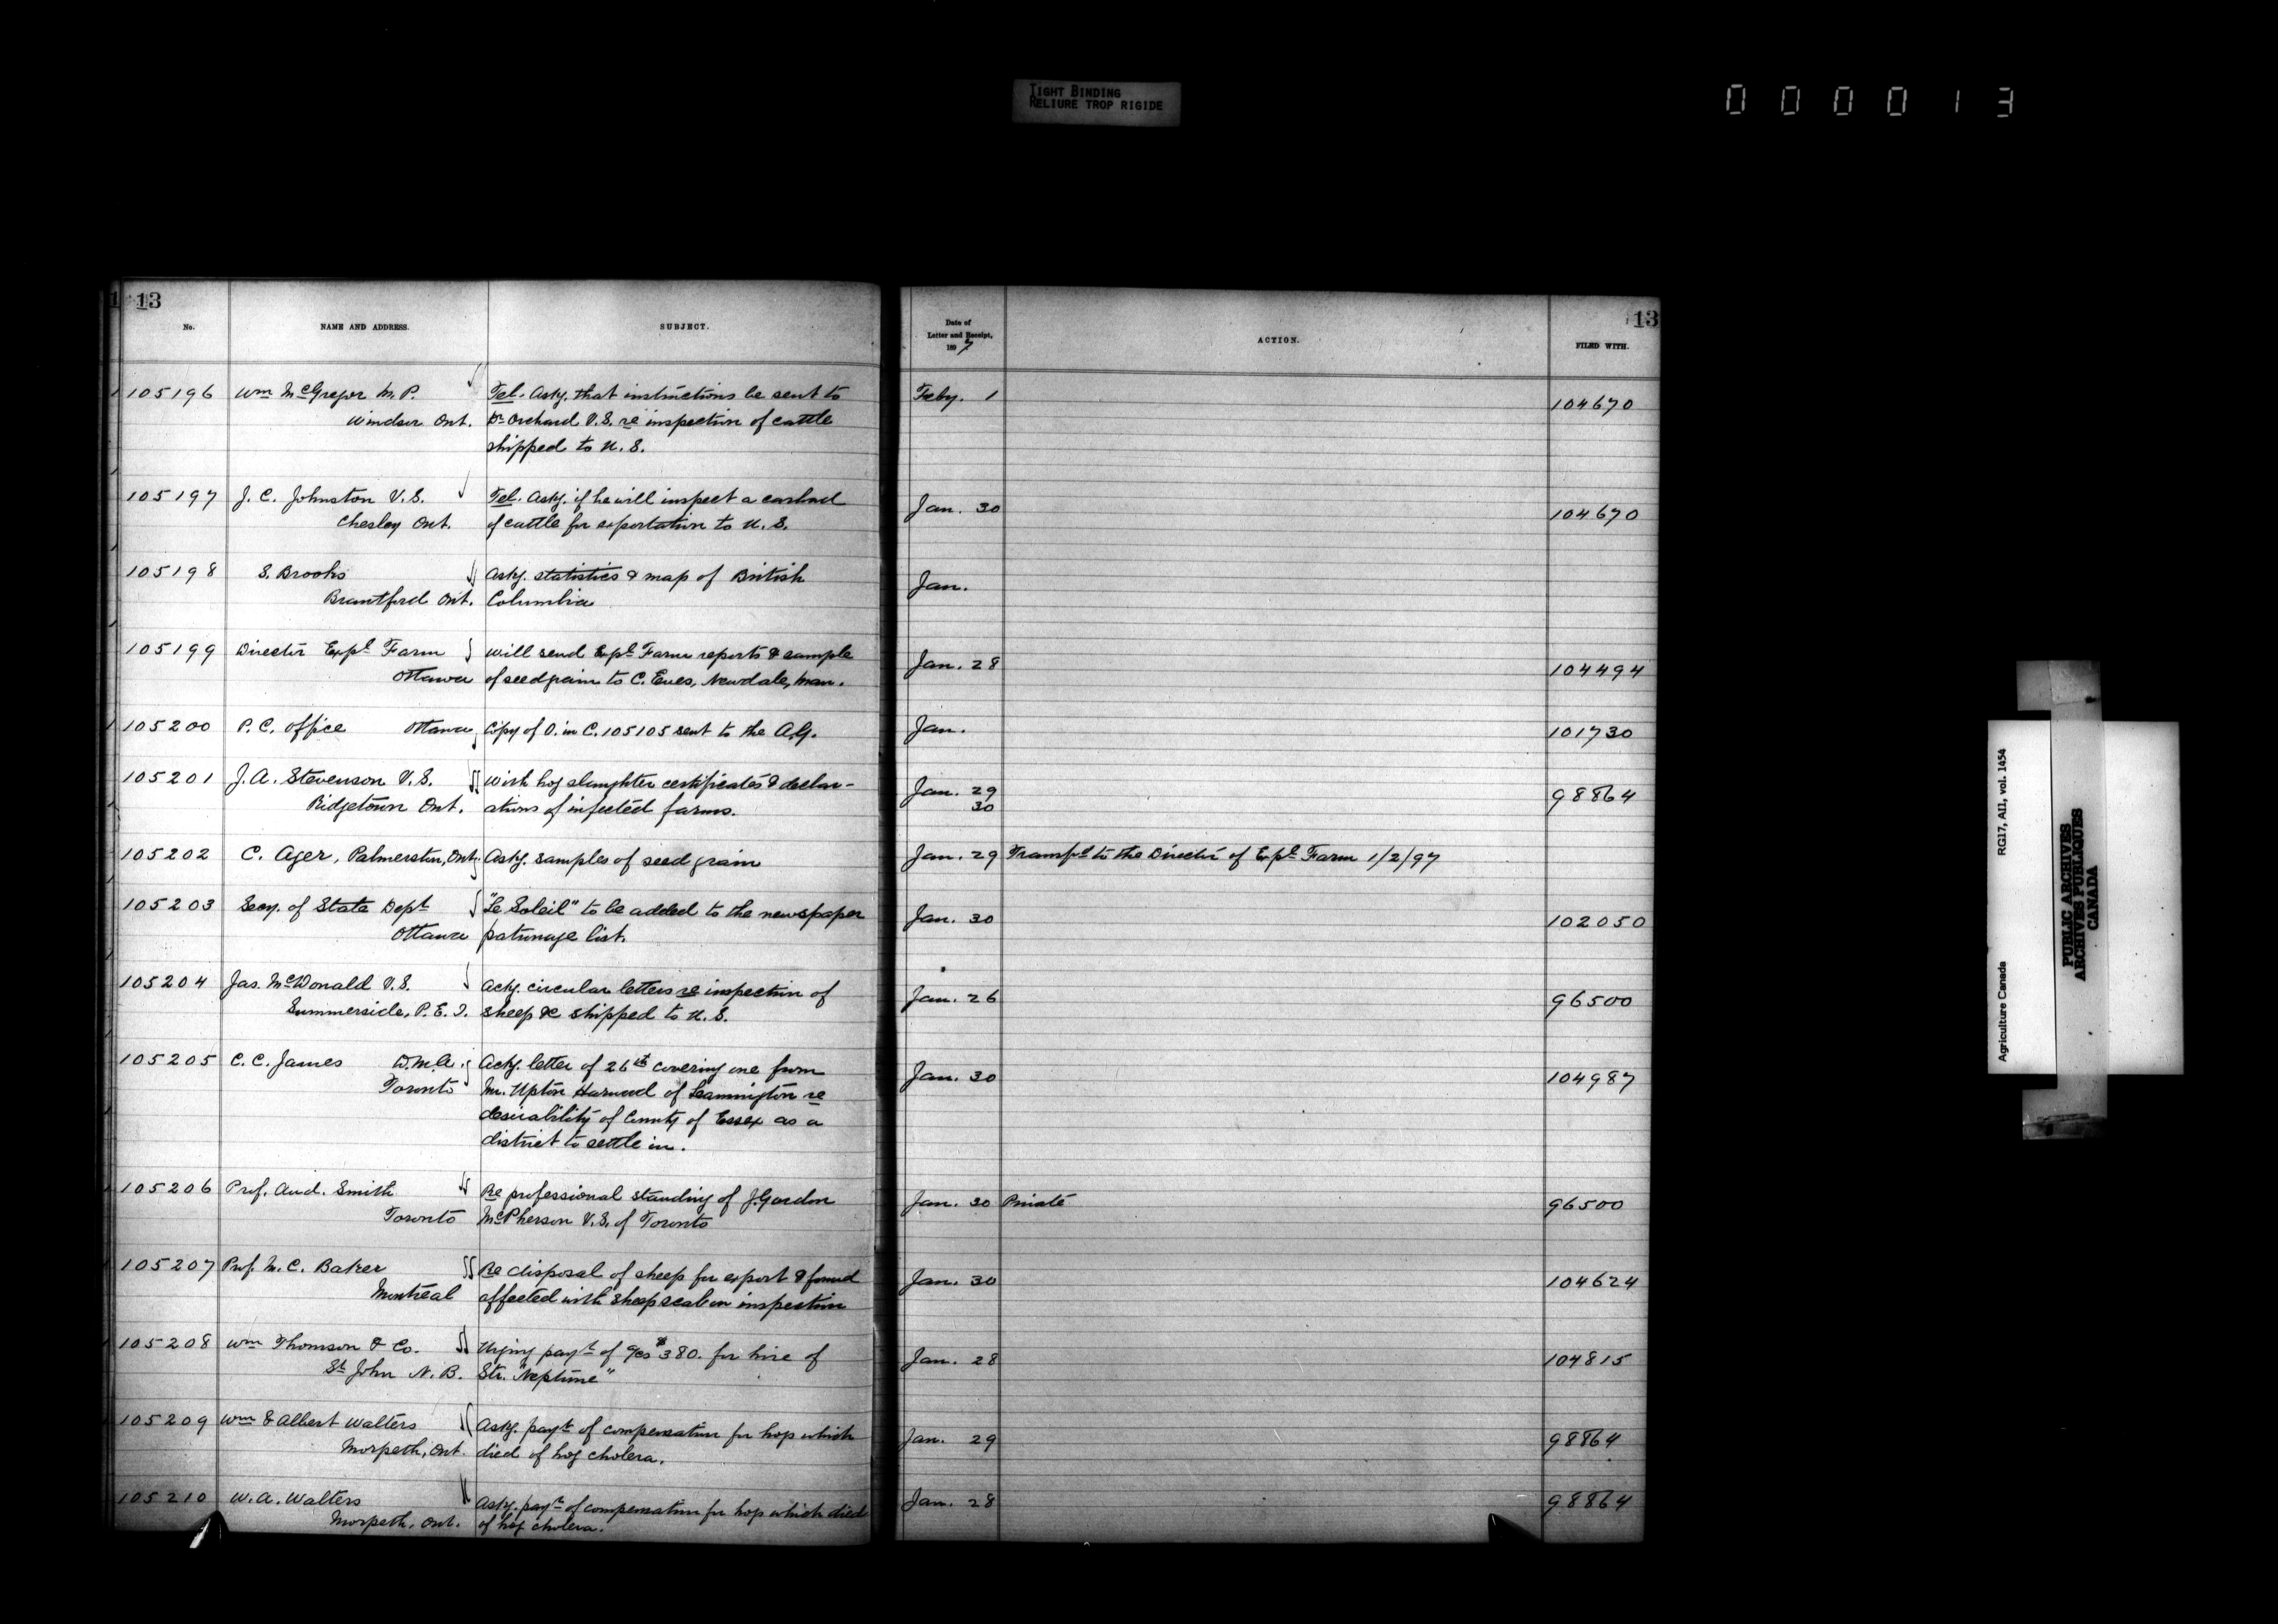 TIGHT BINDING
RELIURE TROP RIGIDE
0 0 0 0 1 3
13
No.
NAME AND ADDRESS.
SUBJECT.
105196 Wm McGregor M.P. Tel. Askg. that instructions be sent to
Windsor Ont. Dr Orchard V.S. re inspection of cattle
shipped to U.S.
105197 J. C. Johnston V.S. Tel. Askg. if he will inspect a carload
Chesley Ont. of cattle for exportation to U.S.
105198 S. Brooks Askg. statistics & map of British
Brantford Ont. Columbia
105199 Director Expl Farm Will send Expl Farm reports & sample
Ottawa of seed grain to C. Eves, Newdale, Man.
105200 P.C. Office Ottawa Copy of O. in C. 105105 sent to the A.G.
105201 J.A. Stevenson V.S. With hog slaughter certificates & declar-
Ridgetown Ont. ations of infected farms.
105202 C. Ager, Palmerston, Ont. Askg. samples of seed grain
105203 Secy. of State Dept "Le Soleil" to be added to the newspaper
Ottawa patronage list.
105204 Jas. McDonald V.S. Ackg. circular letters re inspection of
Summerside, P.E.I. sheep &c shipped to U.S.
105205 C.C. James D.M.A. Ackg. letter of 26th covering one from
Toronto Mr. Upton Harwood of Leamington re
desirability of County of Essex as a
district to settle in.
105206 Prof. And. Smith Re professional standing of J. Gordon
Toronto McPherson V.S. of Toronto
105207 Prof. M.C. Baker Re disposal of sheep for export & found
Montreal affected with sheep scab on inspection
105208 Wm Thomson & Co. Urging payt of $380. for hire of
St John N.B. Str. "Neptune"
105209 Wm & Albert Walters Askg. payt of compensation for hogs which
Morpeth, Ont. died of hog cholera.
105210 W.A. Walters Askg. payt of compensation for hogs which died
Morpeth, Ont. of hog cholera.
13
Date of
Letter and Receipt,
1897
ACTION.
FILED WITH.
Feby. 1 104670
Jan. 30 104670
Jan.
Jan. 28 104494
Jan. 101730
Jan. 29 98864
30
Jan. 29 Transfd to the Director of Expl Farm 1/2/97
Jan. 30 102050
Jan. 26 96500
Jan. 30 104987
Jan. 30 Private 96500
Jan. 30 104624
Jan. 28 104815
Jan. 29 98864
Jan. 28 98864
Agriculture Canada RG17, AII, vol. 1454
PUBLIC ARCHIVES
ARCHIVES PUBLIQUES
CANADA